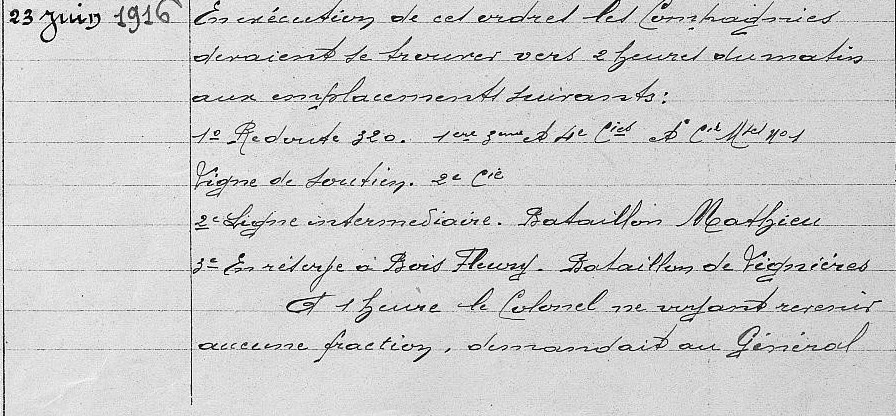 23 Juin 1916 En exécution de cet ordre les Compagnies
devaient se trouver vers 2 heures du matin
aux emplacements suivants:
1º Redoute 320. 1ere 3eme et 4e Cies et Cie Mtes Nº1
Ligne de soutien. 2e Cie
2e Ligne intermediaire. Bataillon Mathieu
3e En réserve à Bois Fleury. Bataillon de Vignières
A 1 heure le Colonel ne voyant revenir
aucune fraction, demandait au Général